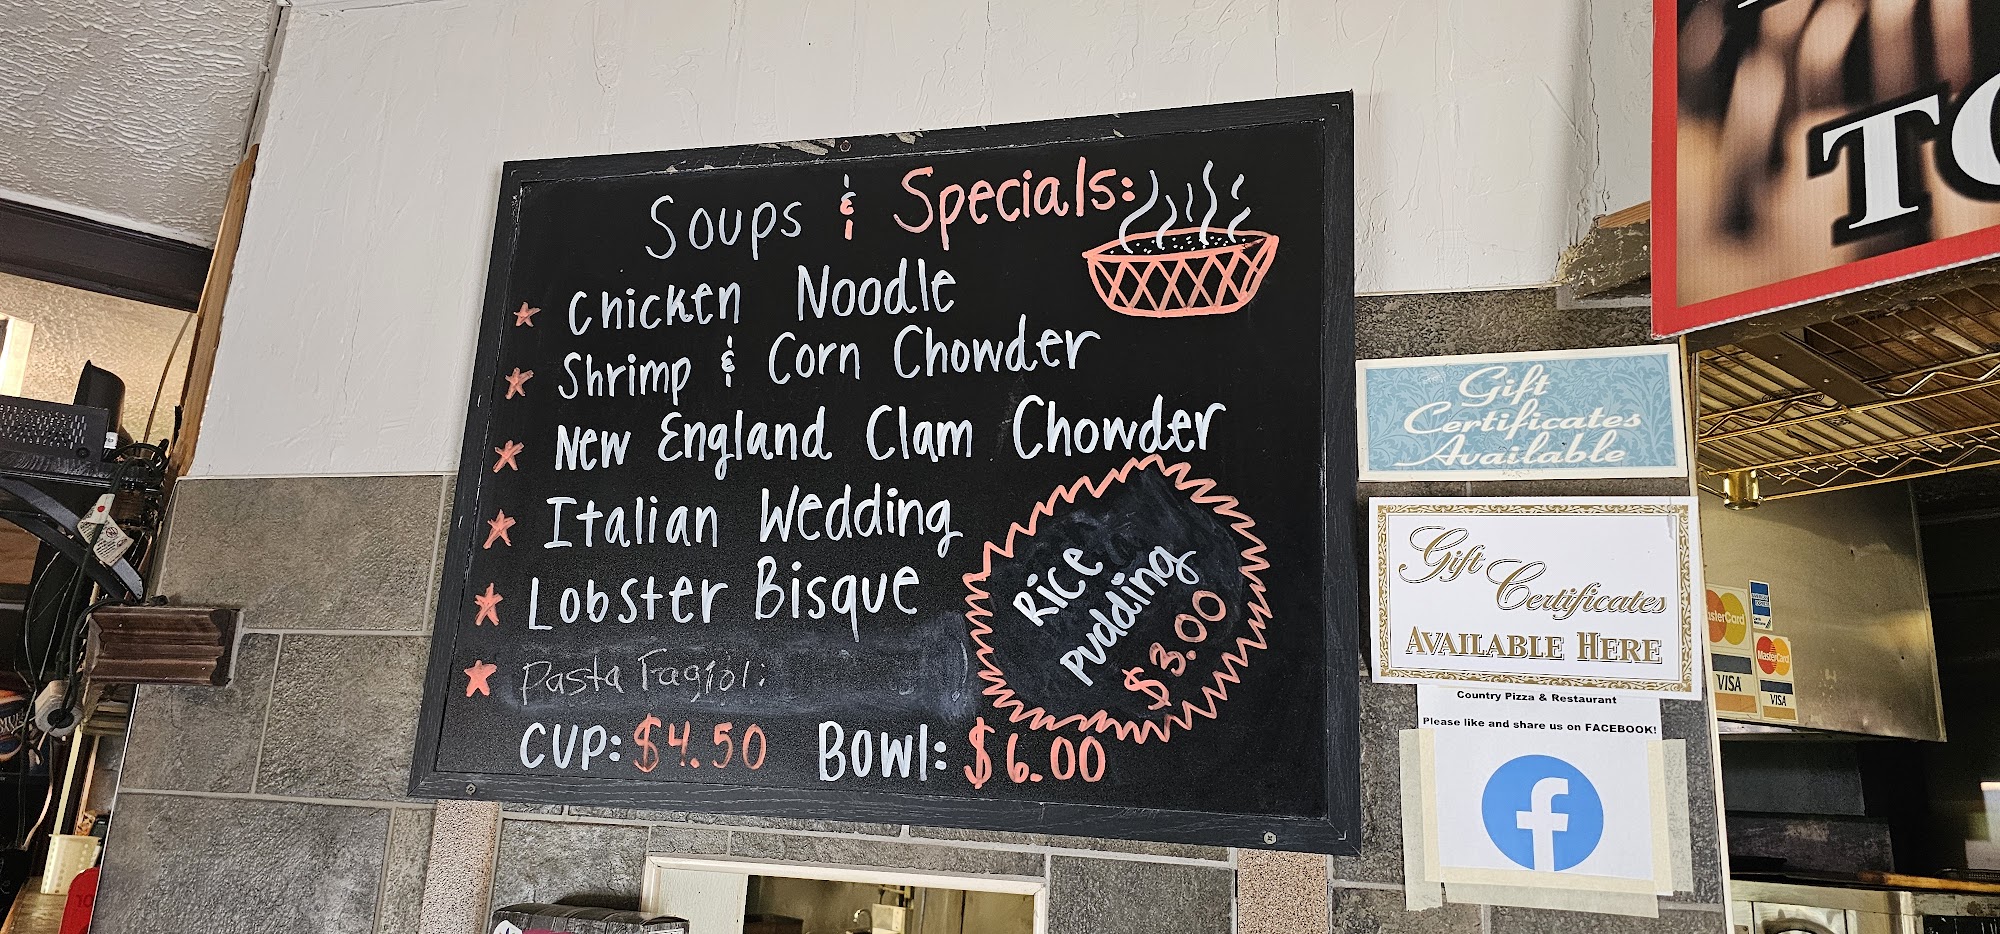 Soups & Specials:
Chicken Noodle
Shrimp & Corn Chowder
New England Clam Chowder
Italian Wedding
Lobster Bisque
Pasta Fagioli
CUP: $4.50 BOWL: $6.00
RICE
PUDDING
$3.00
TO
Gift
Certificates
Available
Gift
Certificates
AVAILABLE HERE
Country Pizza & Restaurant
Please like and share us on FACEBOOK!
f
MasterCard
VISA
MasterCard
VISA